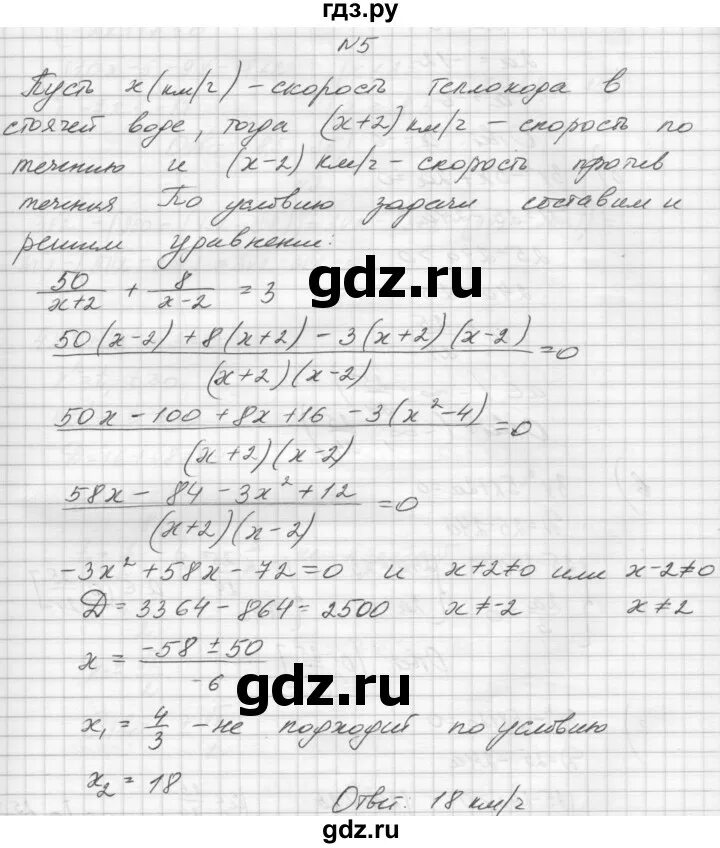 гдз.ру
N5
Пусть x (км/г) - скорость теплохода в
стоячей воде, тогда (x+2) км/г - скорость по
течению и (x-2) км/г - скорость против
течения По условию задачи составим и
решим уравнение:
50/(x+2) + 8/(x-2) = 3
gdz.ru
(50(x-2) + 8(x+2) - 3(x+2)(x-2))/((x+2)(x-2)) = 0
(50x - 100 + 8x + 16 - 3(x²-4))/((x+2)(x-2)) = 0
(58x - 84 - 3x² + 12)/((x+2)(x-2)) = 0
-3x² + 58x - 72 = 0 и x+2≠0 или x-2≠0
Д = 3364 - 864 = 2500 x ≠ -2 x ≠ 2
x = (-58 ± 50)/-6
gdz.ru
x₁ = 4/3 - не подходит по условию
x₂ = 18
Ответ: 18 км/г
gdz.ru